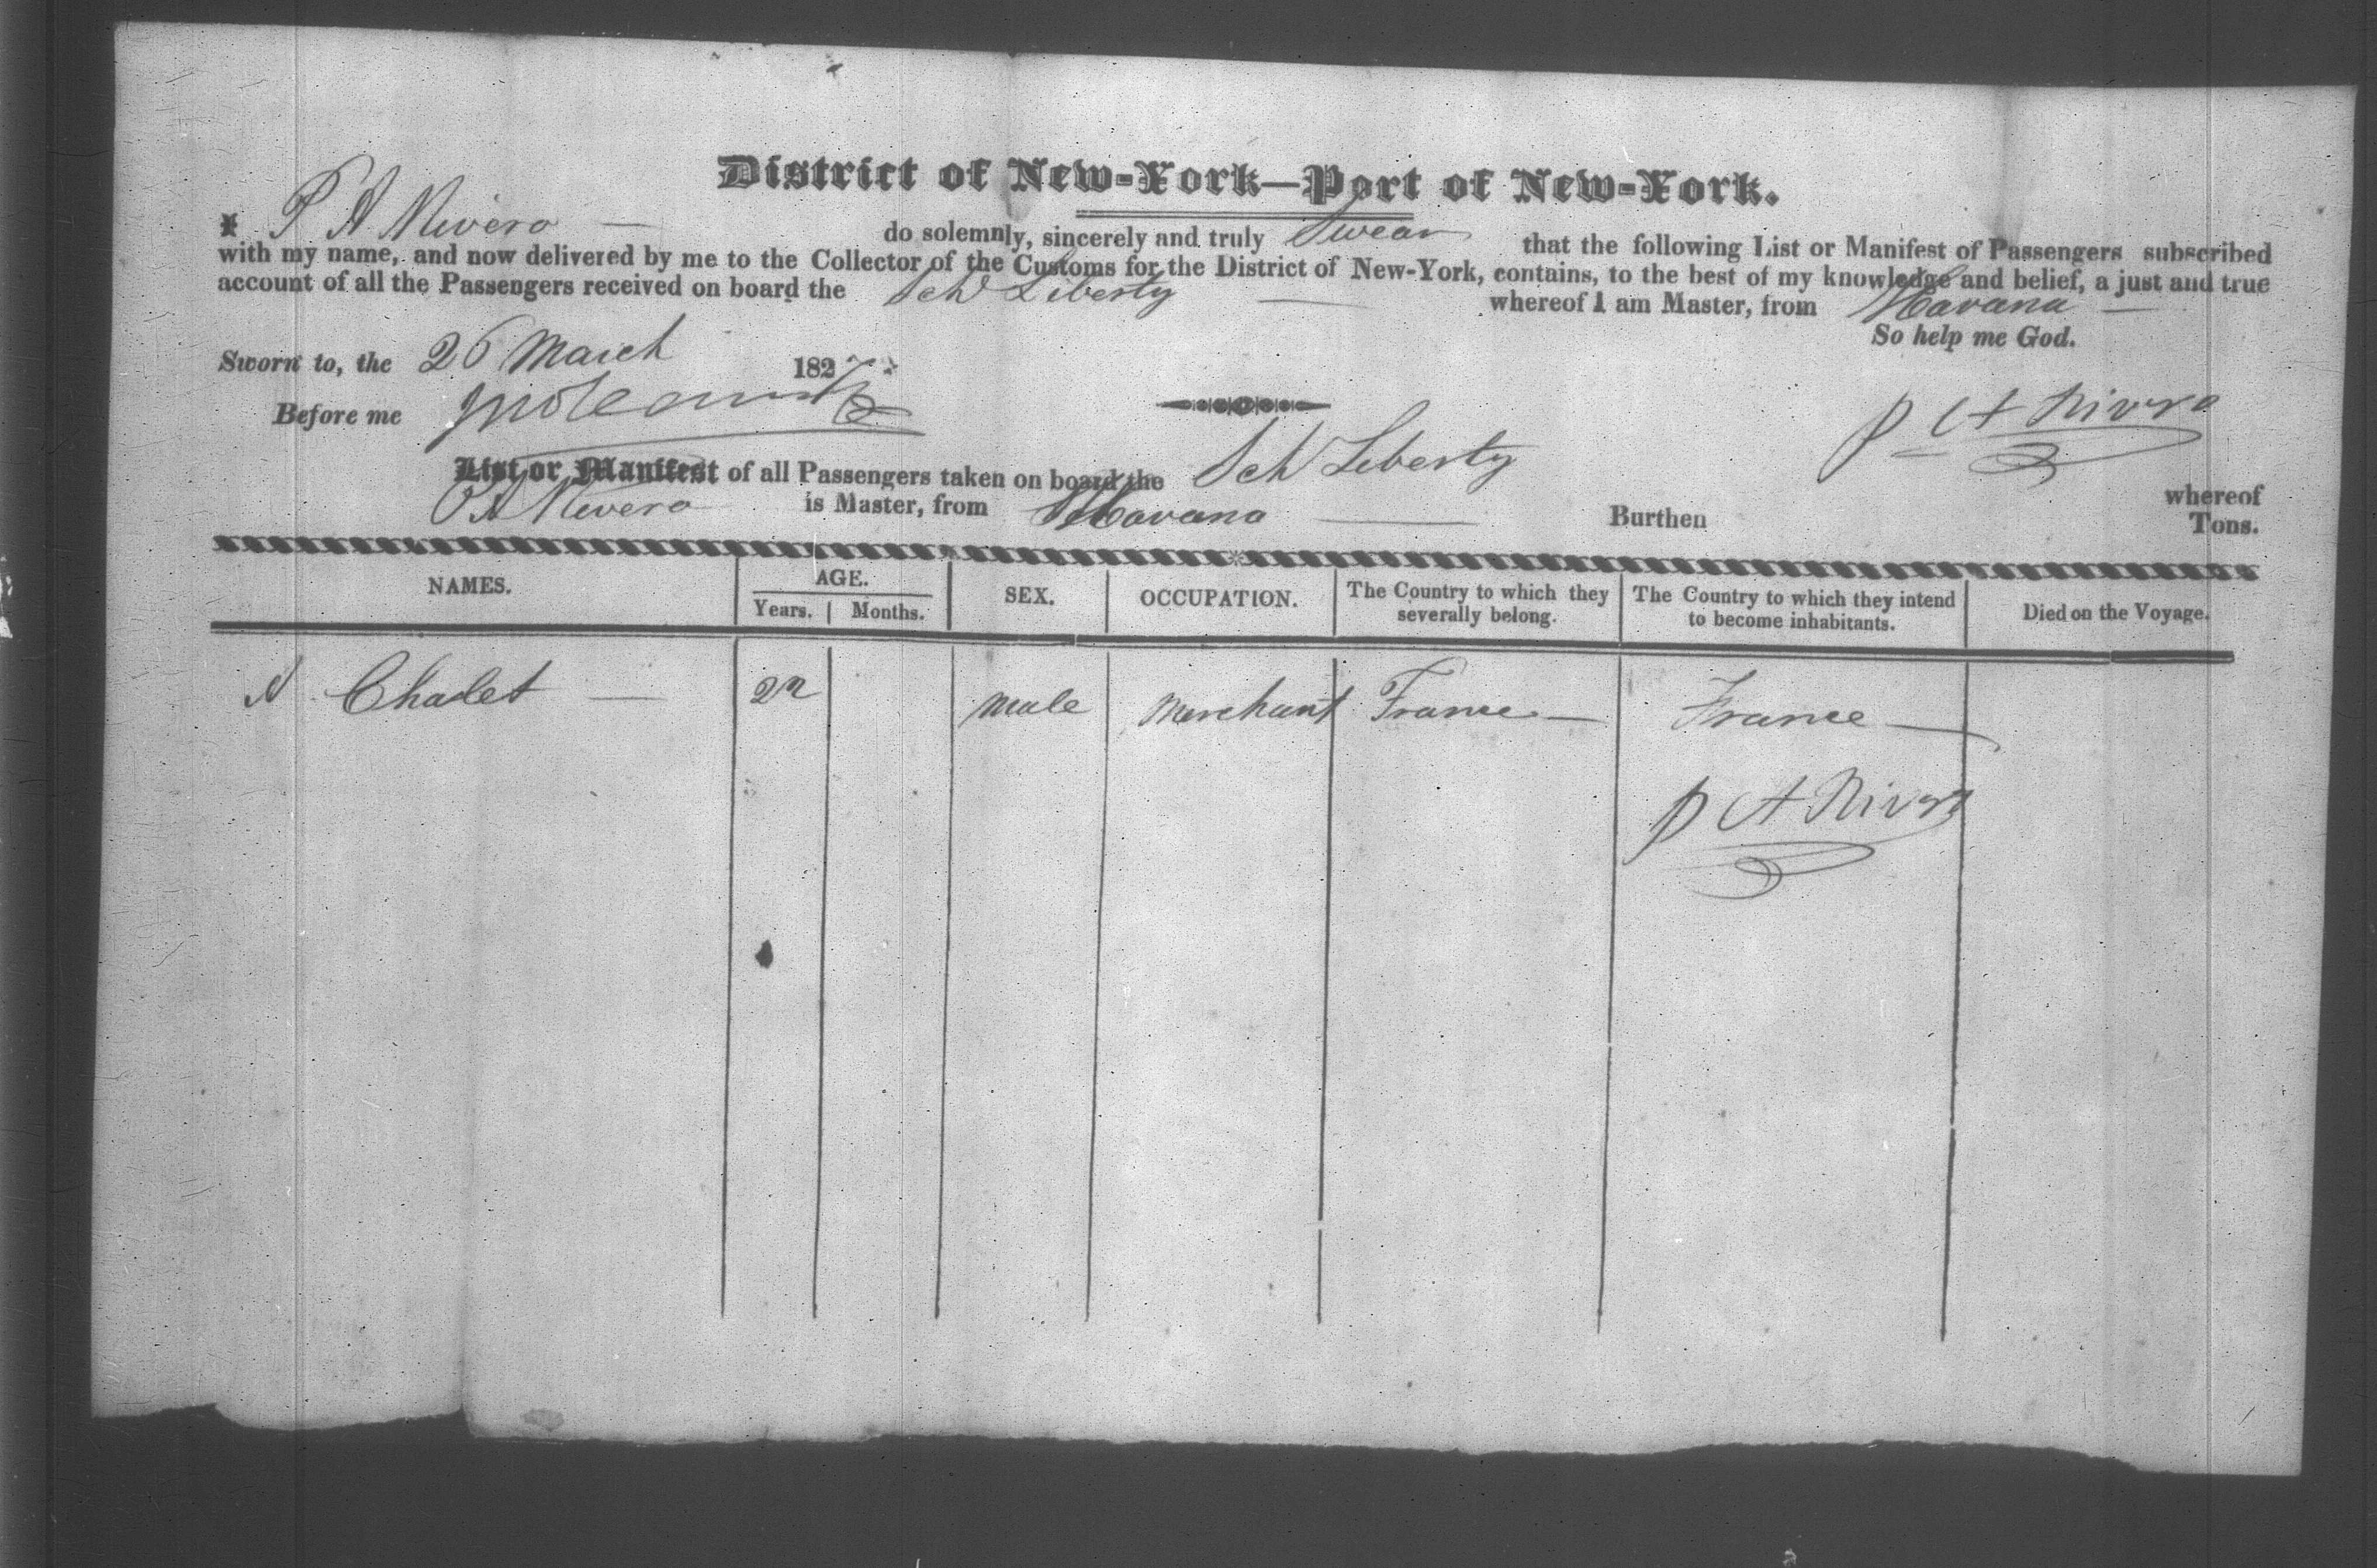 District of New-York—Port of New-York.
I P A Nivero — do solemnly, sincerely and truly Swear that the following List or Manifest of Passengers subscribed
with my name, and now delivered by me to the Collector of the Customs for the District of New-York, contains, to the best of my knowledge and belief, a just and true
account of all the Passengers received on board the Sch Liberty — whereof I am Master, from Havana —
So help me God.
Sworn to, the 26 March 1827
Before me
P A Nivro
List or Manifest of all Passengers taken on board the Sch Liberty whereof
P A Nivero is Master, from Havana — Burthen Tons.
NAMES. AGE. SEX. OCCUPATION. The Country to which they severally belong. The Country to which they intend to become inhabitants. Died on the Voyage.
Years. Months.
A Chalet — 22 Male Merchant France — France —
P A Nivro